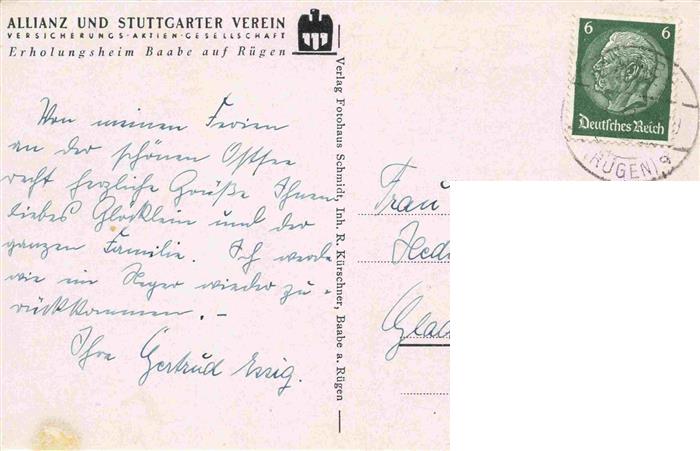 ALLIANZ UND STUTTGARTER VEREIN
VERSICHERUNGS-AKTIEN-GESELLSCHAFT
Erholungsheim Baabe auf Rügen
Von meinen Ferien
an der schönen Ostsee
recht herzliche Grüße Ihnen
liebes Glöcklein und der
ganzen Familie. Ich werde
wie ein Neger wieder zu-
rückkommen. –
Ihre Gertrud Essig.
Verlag Fotohaus Schmidt, Inh. R. Kürschner, Baabe a. Rügen
6 6
Deutsches Reich
(RÜGEN) a
Frau
Hed
Glad